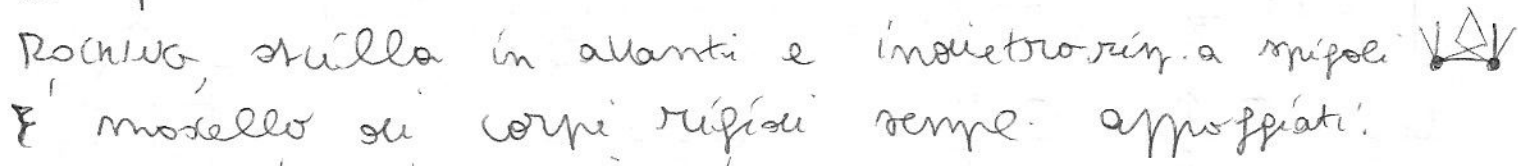 ROCKING, oscilla in avanti e indietro risp. a spigoli
È modello di corpi rigidi sempl. appoggiati.